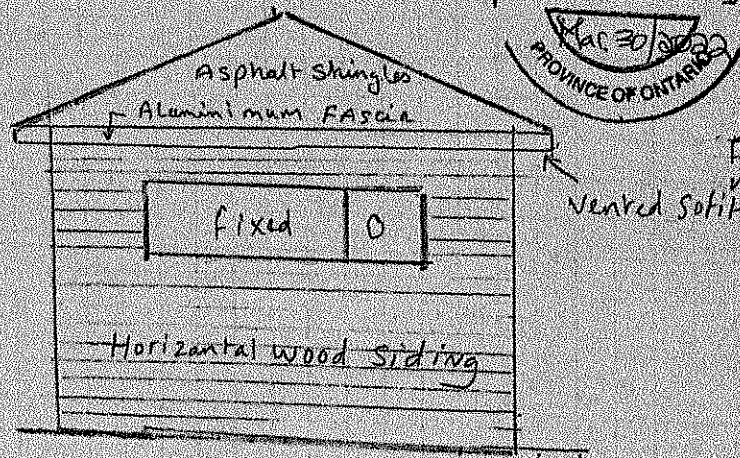 Mar. 30/2022
PROVINCE OF ONTARIO
Asphalt Shingles
Aluminimum FAscia
Vented Sofit
fixed
O
Horizantal wood Siding